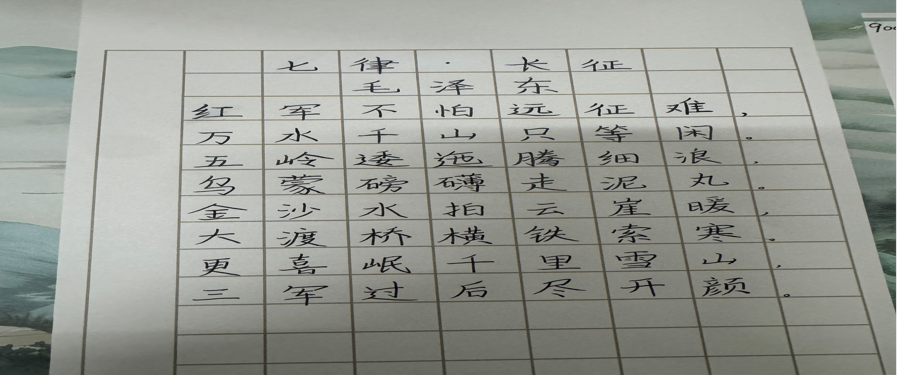 七律·长征
毛泽东
红军不怕远征难，
万水千山只等闲。
五岭逶迤腾细浪，
乌蒙磅礴走泥丸。
金沙水拍云崖暖，
大渡桥横铁索寒。
更喜岷千里雪山，
三军过后尽开颜。